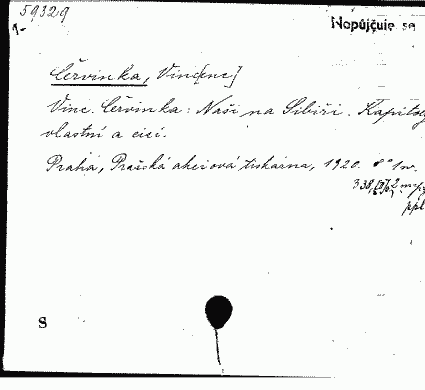 59329
Nepůjčuje se
Červinka, Vinc[enc]
Vinc. Červinka: Naši na Sibiři. Kapitoly
vlastní a cizí.
Praha, Pražská akciová tiskárna, 1920. 8° 1 sv.
338,
S